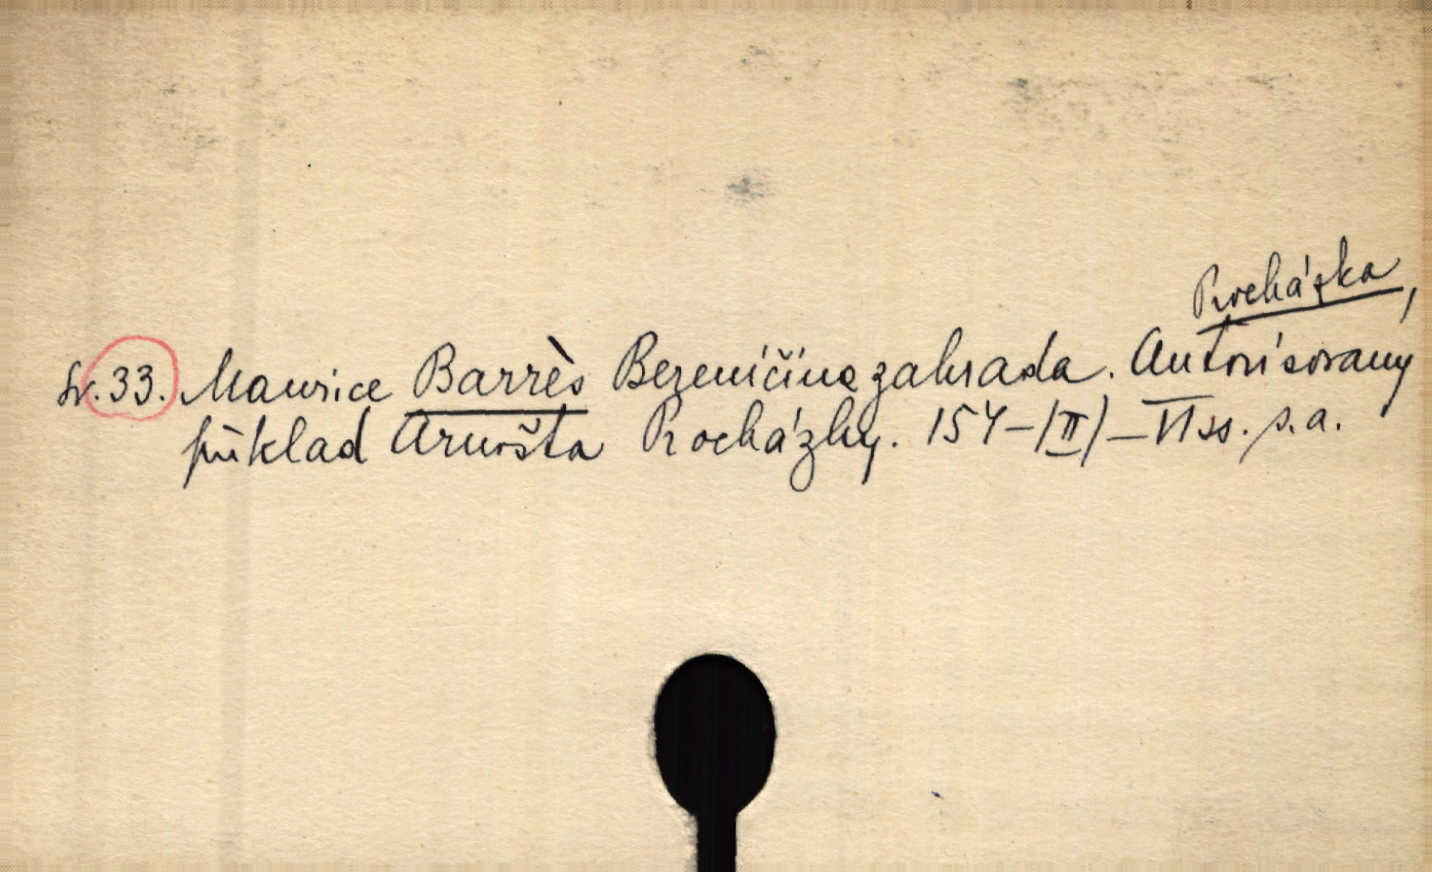 Procházka,
Sv. 33. Maurice Barrès Bereničina zahrada. Autorisovaný
překlad Arnošta Procházky. 154-(II)-VI ss. s.a.